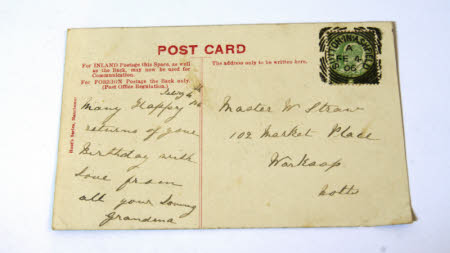 POST CARD
For INLAND Postage this Space, as well
as the Back, may now be used for
Communication.
For FOREIGN Postage the Back only.
(Post Office Regulation.)
The address only to be written here.
Feby 4
06
Many Happy
returns of your
Birthday with
love from
all your loving
Grandma
Master W Straw
102 Market Place
Worksop
Notts
A
FE 4
06